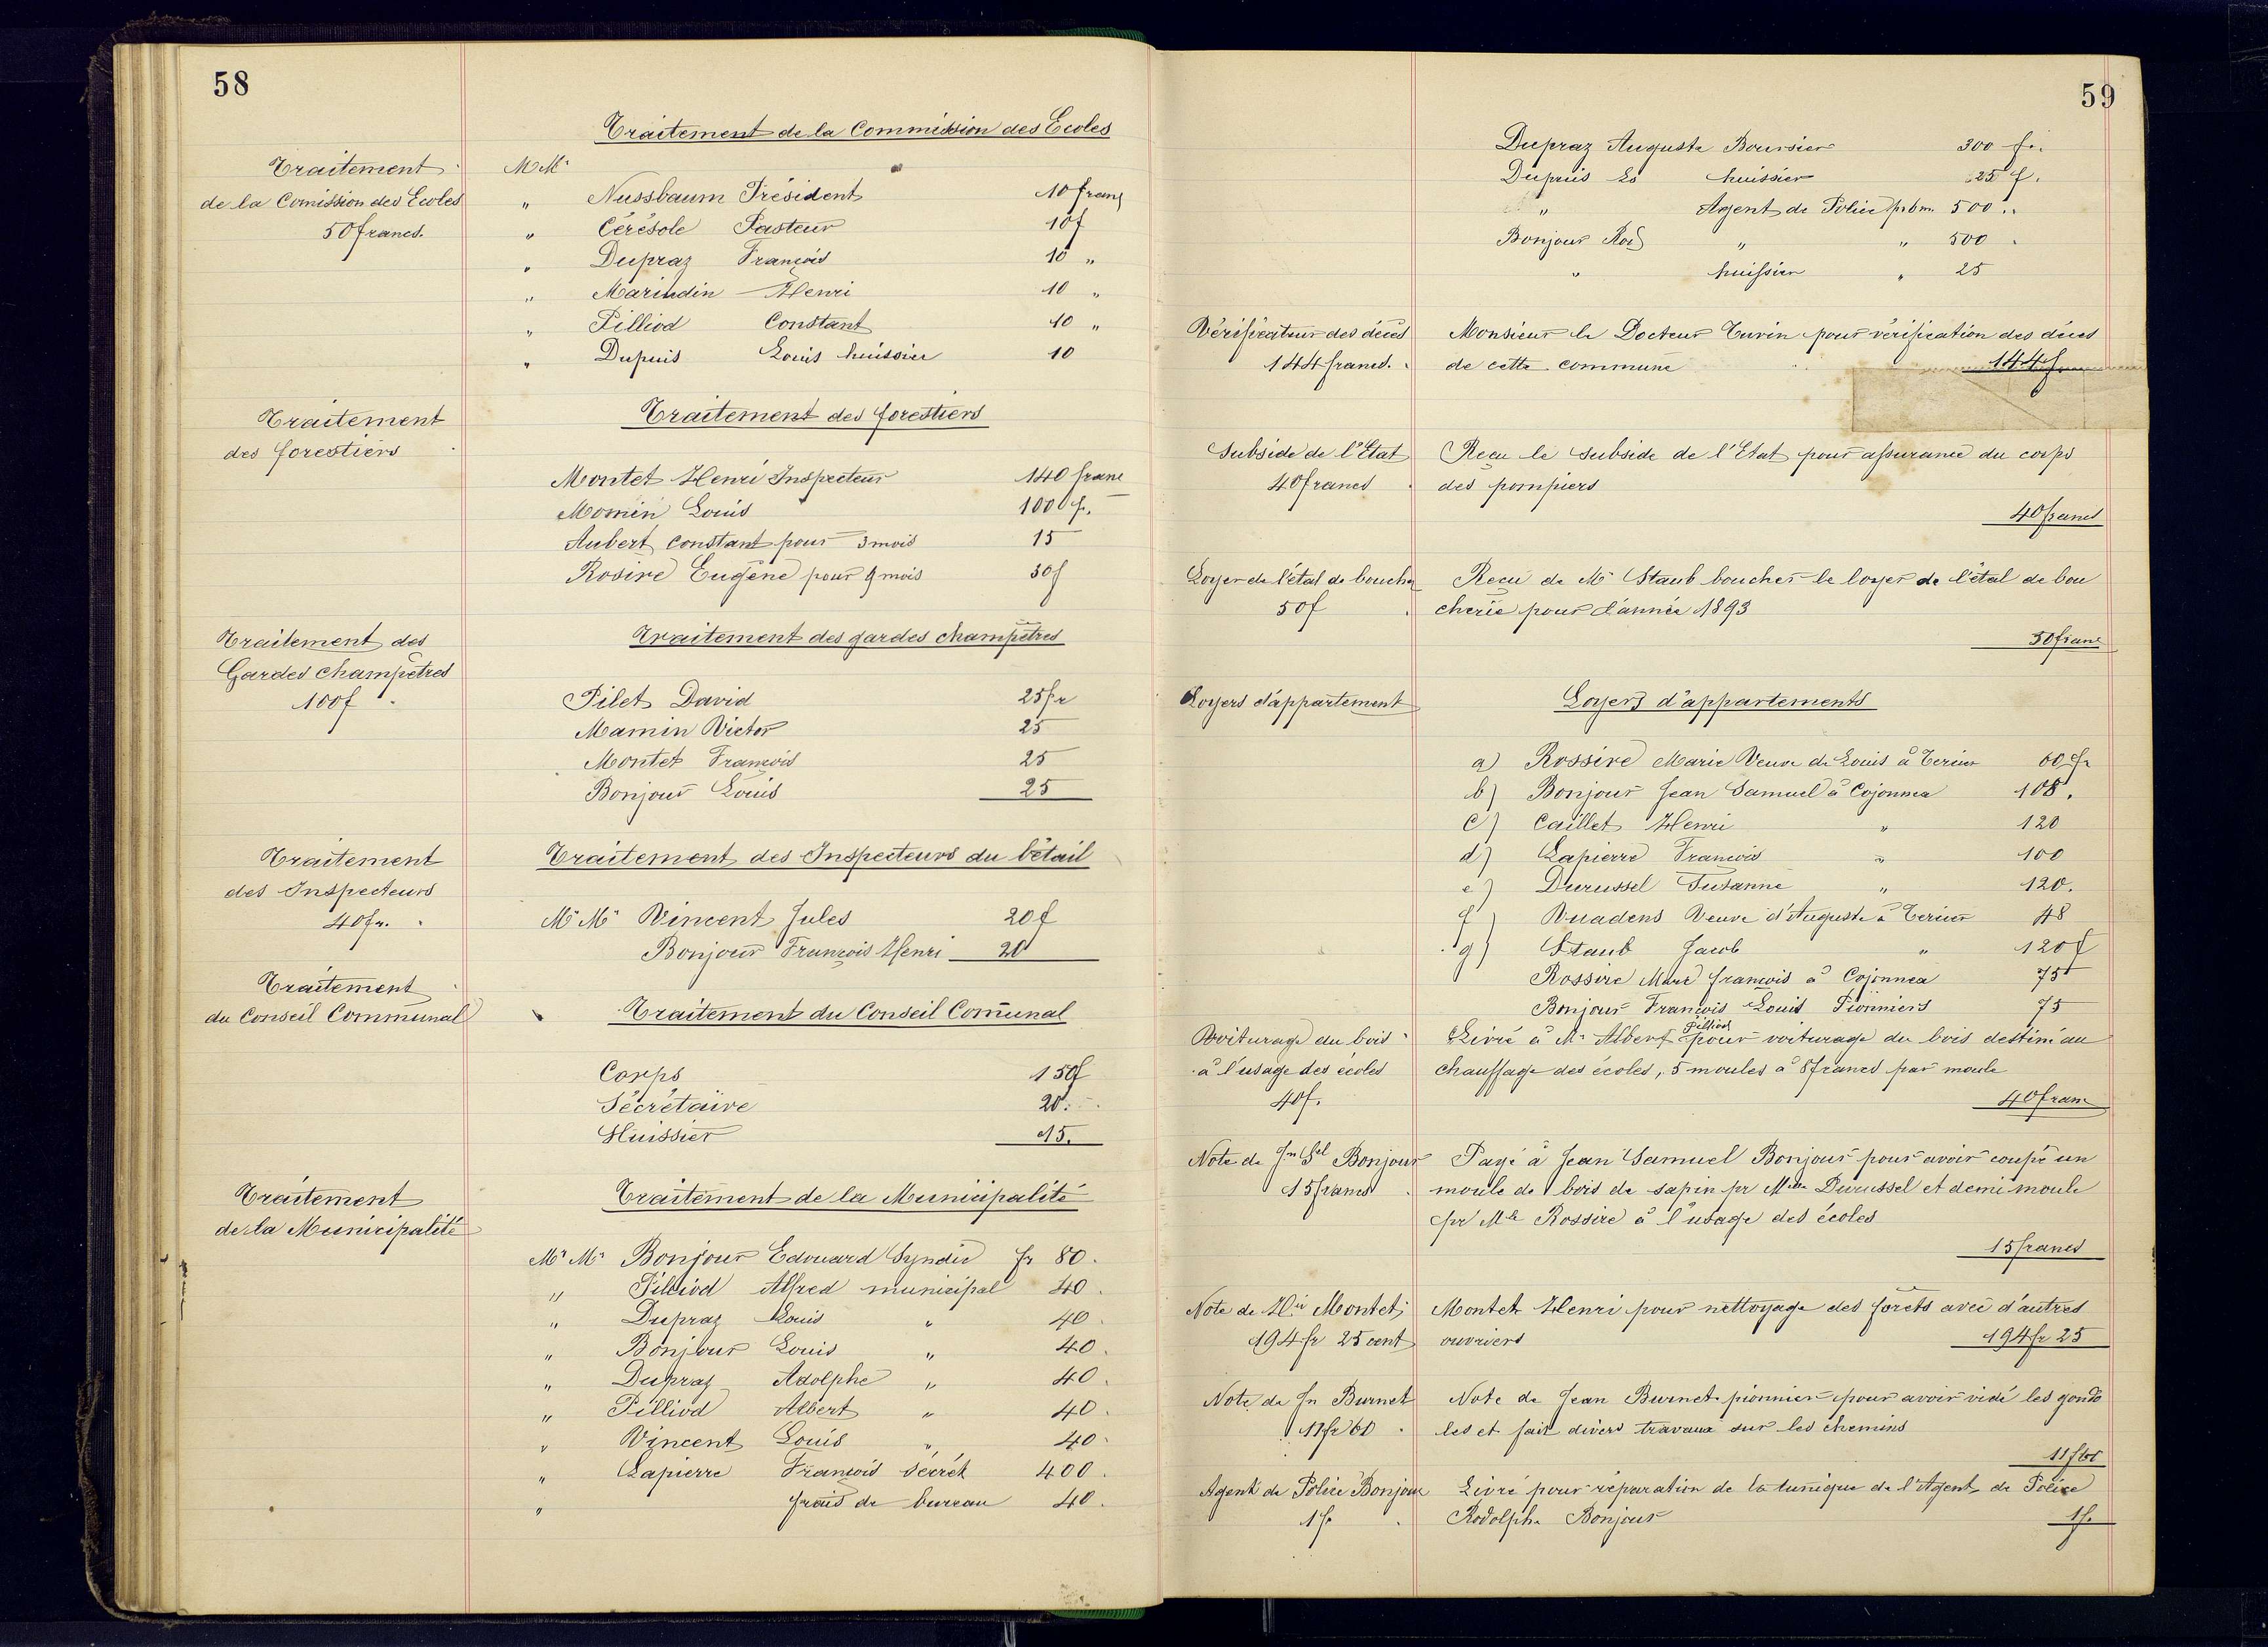 58
Traitement de la Commission des Ecoles
Traitement
de la Comission des Ecoles
50 francs.
MMrs
" Nussbaum Président 10 francs
" Cérésole Pasteur 10 f
" Dupraz François 10 "
" Marindin Henri 10 "
" Pilliod Constant 10 "
" Dupuis Louis huissier 10
Traitement
des forestiers
Traitement des forestiers
Montet Henri Inspecteur 140 franc
Momin Louis 1000 f.
Aubert Constant pour 3 mois 15
Rosire Eugène pour 9 mois 30 f
Traitement des
Gardes champêtres
100 f
Traitement des gardes champêtres
Pilet David 25 fr
Mamin Victor 25
Montet François 25
Bonjour Louis 25
Traitement
des Inspecteurs
40 fr.
Traitement des Inspecteurs du bétail
Mr Mr Vincent Jules 20 f
Bonjour François Henri 20
Traitement
du Conseil Communal
Traitement du Conseil Comunal
Corps 150 f
Sécrétaire 20.
Huissier 15.
Traitement
de la Municipalité
Traitement de la Municipalité
Mr Mr Bonjour Edouard Syndic fr 80.
" Pilliod Alfred municipal 40.
" Dupraz Louis " 40.
" Bonjour Louis " 40.
" Dupraz Adolphe " 40.
" Pilliod Albert " 40.
" Vincent Louis " 40.
" Lapierre François Sécrét 400.
" frais de bureau 40.
59
Dupraz Auguste Boursier 300 fr.
Dupuis Ls huissier 25 f.
" Agent de Police 500 "
Bonjour Rod " " 500 .
" huissier " 25
Vérificateur des décès
144 francs.
Monsieur le Docteur Turin pour vérification des décès
de cette commune 144 f
Subside de l'Etat
40 francs
Reçu le subside de l'Etat pour assurance du corps
des pompiers
40 francs
Loyer de l'étal de bouche
50 f
Reçu de Mr Staub boucher le loyer de l'étal de bou
cherie pour l'année 1893
50 franc
Loyers d'appartement
Loyers d'appartements
a) Rossire Marie Veuve de Louis à 60 fr
b) Bonjour Jean Samuel à Cojonnea 108.
c) Caillet Henri " 120
d) Lapierre François " 100
e) Durussel Susanne " 120.
f) Vuadens Veuve d'Auguste à 48
g) Staub Jacob " 120 f
Rossire Marc françois à Cojonnea 75
Bonjour François Louis Pionniers 75
Voiturage du bois
à l'usage des écoles
40 f.
Livré à Mr Albert Pilliod pour voiturage du bois destiné au
chauffage des écoles, 5 moules à 8 francs par moule
40 franc
Note de Jn Sel Bonjour
15 francs
Payé à Jean Samuel Bonjour pour avoir coupé un
moule de bois de sapin pr Melle Durussel et demi moule
pr Mlle Rossire à l'usage des écoles
15 francs
Note de Hri Montet
194 fr 25 cent
Montet Henri pour nettoyage des forêts avec d'autres
ouvriers 194 fr 25
Note de Jn Burnet
11 fr 60
Note de Jean Burnet pionnier pour avoir vidé les gondo
les et fait divers travaux sur les chemins
11 f 60
Agent de Police Bonjour
1 fr
Livré pour réparation de la tunique de l'Agent de Police
Rodolphe Bonjour 1 fr